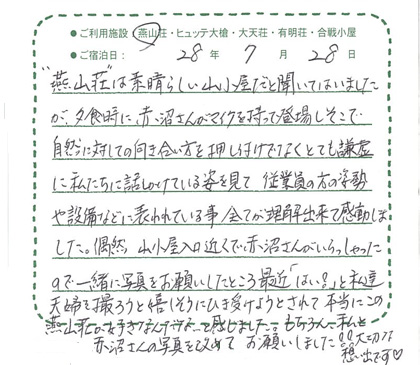 ●ご利用施設　燕山荘・ヒュッテ大槍・大天荘・有明荘・合戦小屋
●ご宿泊日：　28年　7月　28日
"燕山荘"は素晴らしい山小屋だと聞いてはいました
が、夕食時に、赤沼さんがマイクを持って登場しそこで
自然に対しての向き合い方を押し付けでなくとても謙虚
に私たちに話しかけている姿を見て 従業員の方の姿勢
や設備などに表われている事全てが理解出来て感動しま
した。偶然 山小屋入口近くで、赤沼さんがいらっしゃった
ので一緒に写真をお願いしたところ最近「はい？」と私達
夫婦を撮ろうと嬉しそうにひき受けようとされて 本当にこの
燕山荘が好きなんだな〜と感じました。もちろん、私と
赤沼さんの写真を改めて お願いしました!!大切な
想い出です♡